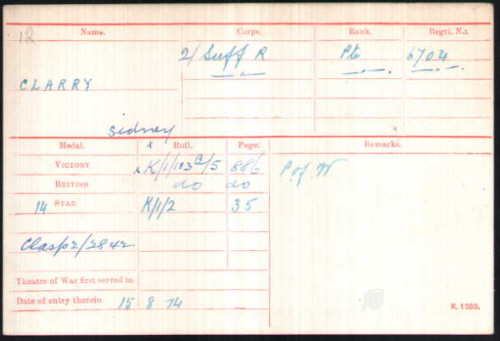 12
Name. Corps. Rank. Regtl. No.
2/ Suff R Pte 6704
CLARRY
Sidney
Medal. Roll. Page. Remarks.
VICTORY K/1/113 /5 886 P of W
BRITISH do do
14 STAR K/1/2 35
Clasp 2/2842
Theatre of War first served in
Date of entry therein 15 8 14
K. 1380.